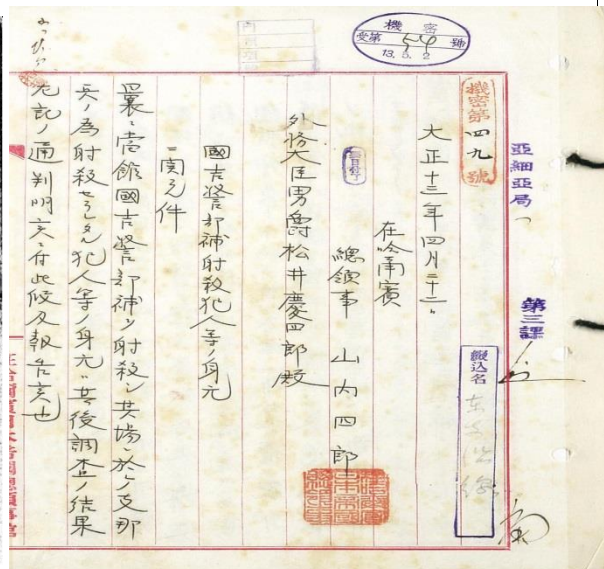 機密
受第54號
13.5.2
亞細亞局
第三課
綴込名
機密第四九號
大正十三年四月二十二日
在哈爾賓
總領事 山内四郎
外務大臣男爵松井慶四郎殿
國吉警部補射殺犯人等ノ身元
ニ関スル件
曩ニ當館國吉警部補ヲ射殺シ其場ニ於テ支那
兵ノ為射殺セラレタル犯人等ノ身元ハ其後調査ノ結果
左記ノ通判明致候ニ付此段及報告候也